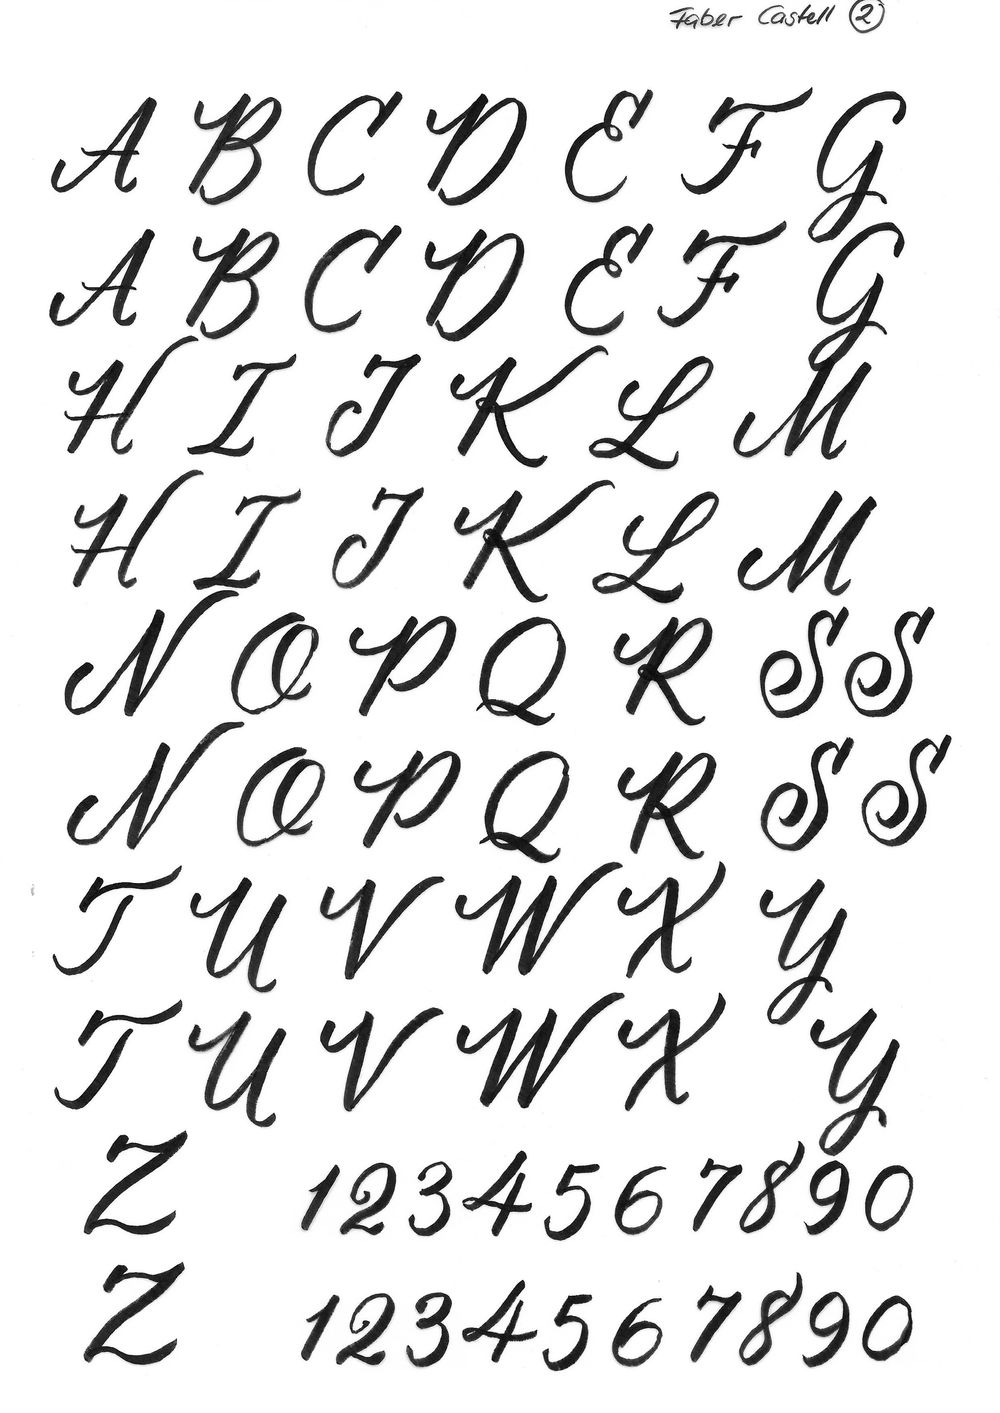 Faber Castell 2
A B C D E F G
A B C D E F G
H I J K L M
H I J K L M
N O P Q R S S
N O P Q R S S
T U V W X Y
T U V W X Y
Z 1 2 3 4 5 6 7 8 9 0
Z 1 2 3 4 5 6 7 8 9 0